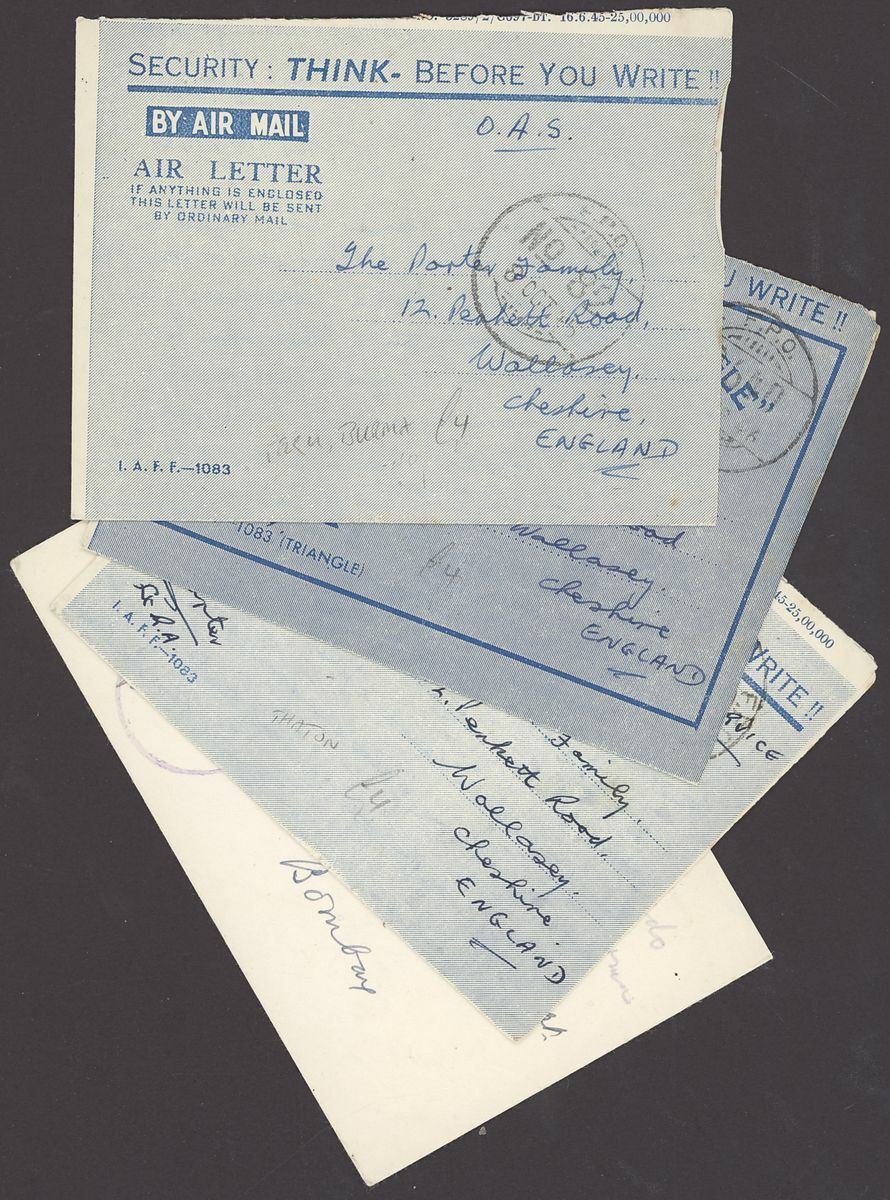 NO. 8289/2/8697-DT. 16.6.45-25,00,000
SECURITY : THINK- BEFORE YOU WRITE !!
BY AIR MAIL
O.A.S.
AIR LETTER
IF ANYTHING IS ENCLOSED
THIS LETTER WILL BE SENT
BY ORDINARY MAIL
F.P.O.
NO.
OCT
The Porter Family,
12. Penkett Road,
Wallasey.
Cheshire,
ENGLAND
BURMA £4
I. A. F. F.—1083
U WRITE !!
F.P.O.
EDE"
oad
1083 (TRIANGLE)
£4
Wallasey.
Cheshire
ENGLAND
45-25,00,000
WRITE !!
rter
R.A.
I. A. F. F.—1083
THATON
£4
Family,
2. Penkett Road,
Wallasey.
Cheshire
ENGLAND
Bombay